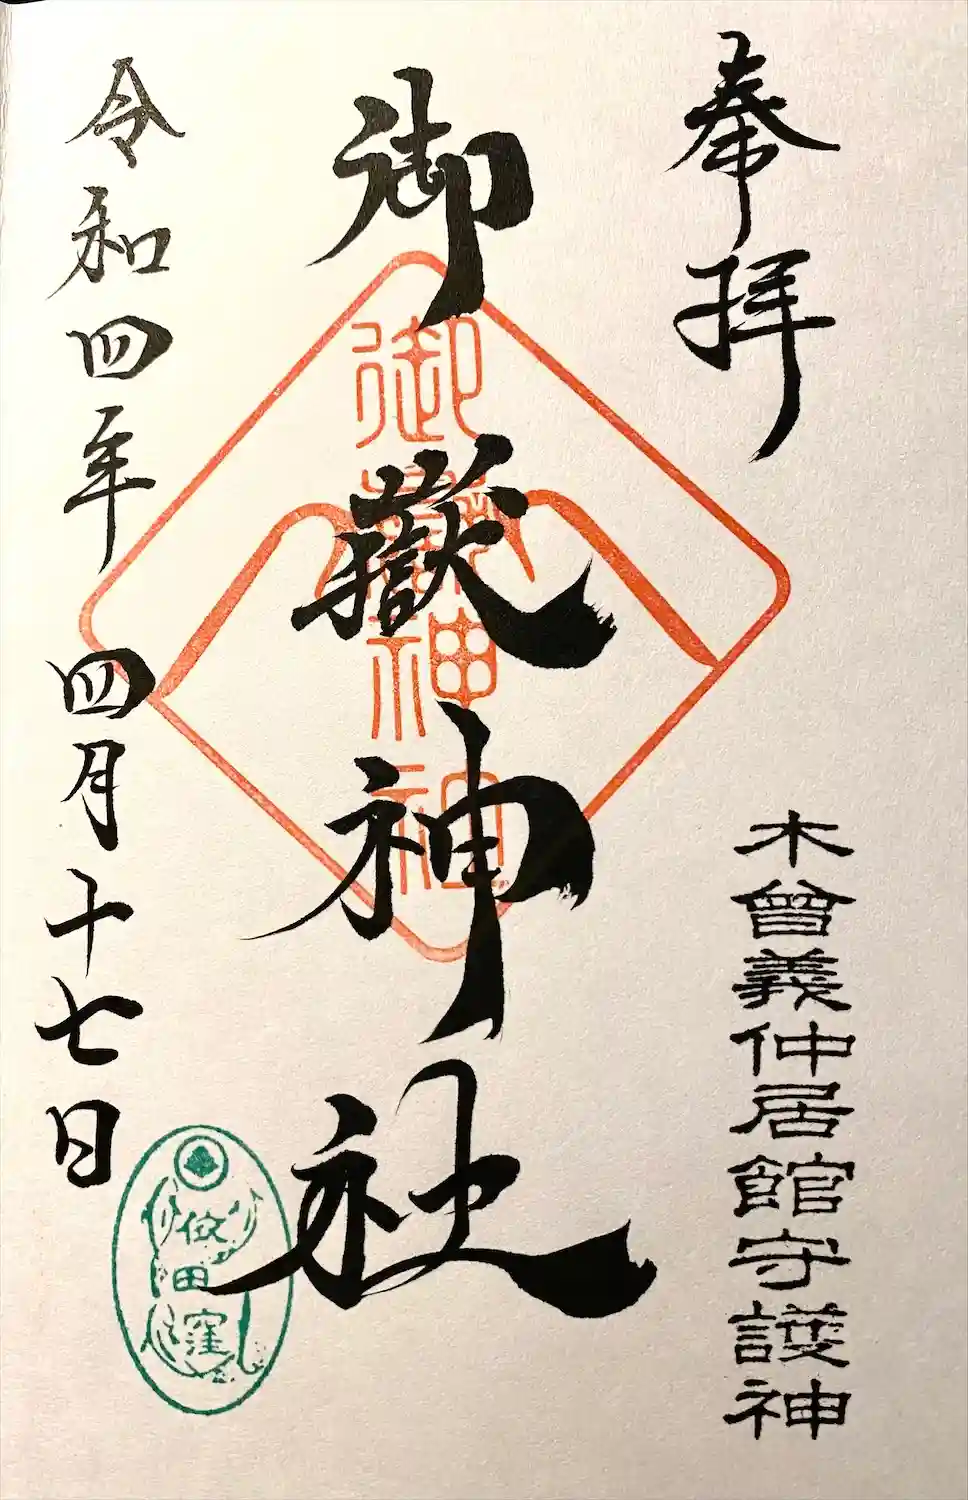 奉拝
木曾義仲居館守護神
御嶽神社
御嶽神社
令和四年四月十七日
依田窪